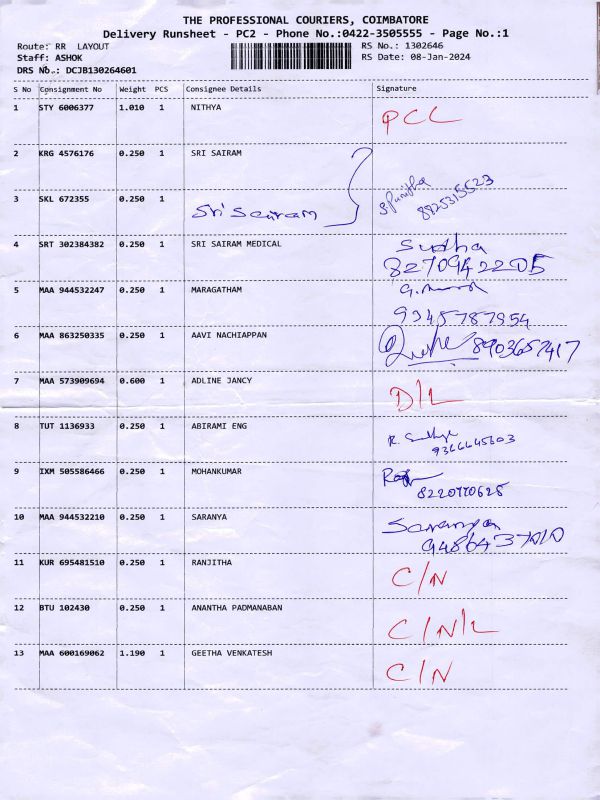 THE PROFESSIONAL COURIERS, COIMBATORE
Delivery Runsheet - PC2 - Phone No.:0422-3505555 - Page No.:1
Route: RR LAYOUT RS No.: 1302646
Staff: ASHOK RS Date: 08-Jan-2024
DRS No.: DCJB130264601
S No Consignment No Weight PCS Consignee Details Signature
1 STY 6006377 1.010 1 NITHYA PCL
2 KRG 4576176 0.250 1 SRI SAIRAM
3 SKL 672355 0.250 1 Sri Sairam S Punitha
8925315523
4 SRT 302384382 0.250 1 SRI SAIRAM MEDICAL Sudha
8270942205
5 MAA 944532247 0.250 1 MARAGATHAM
9345787954
6 MAA 863250335 0.250 1 AAVI NACHIAPPAN 8903657417
7 MAA 573909694 0.600 1 ADLINE JANCY D/L
8 TUT 1136933 0.250 1 ABIRAMI ENG
9 IXM 505586466 0.250 1 MOHANKUMAR
8220770625
10 MAA 944532210 0.250 1 SARANYA Saranya
11 KUR 695481510 0.250 1 RANJITHA C/N
12 BTU 102430 0.250 1 ANANTHA PADMANABAN C/N/L
13 MAA 600169062 1.190 1 GEETHA VENKATESH C/N